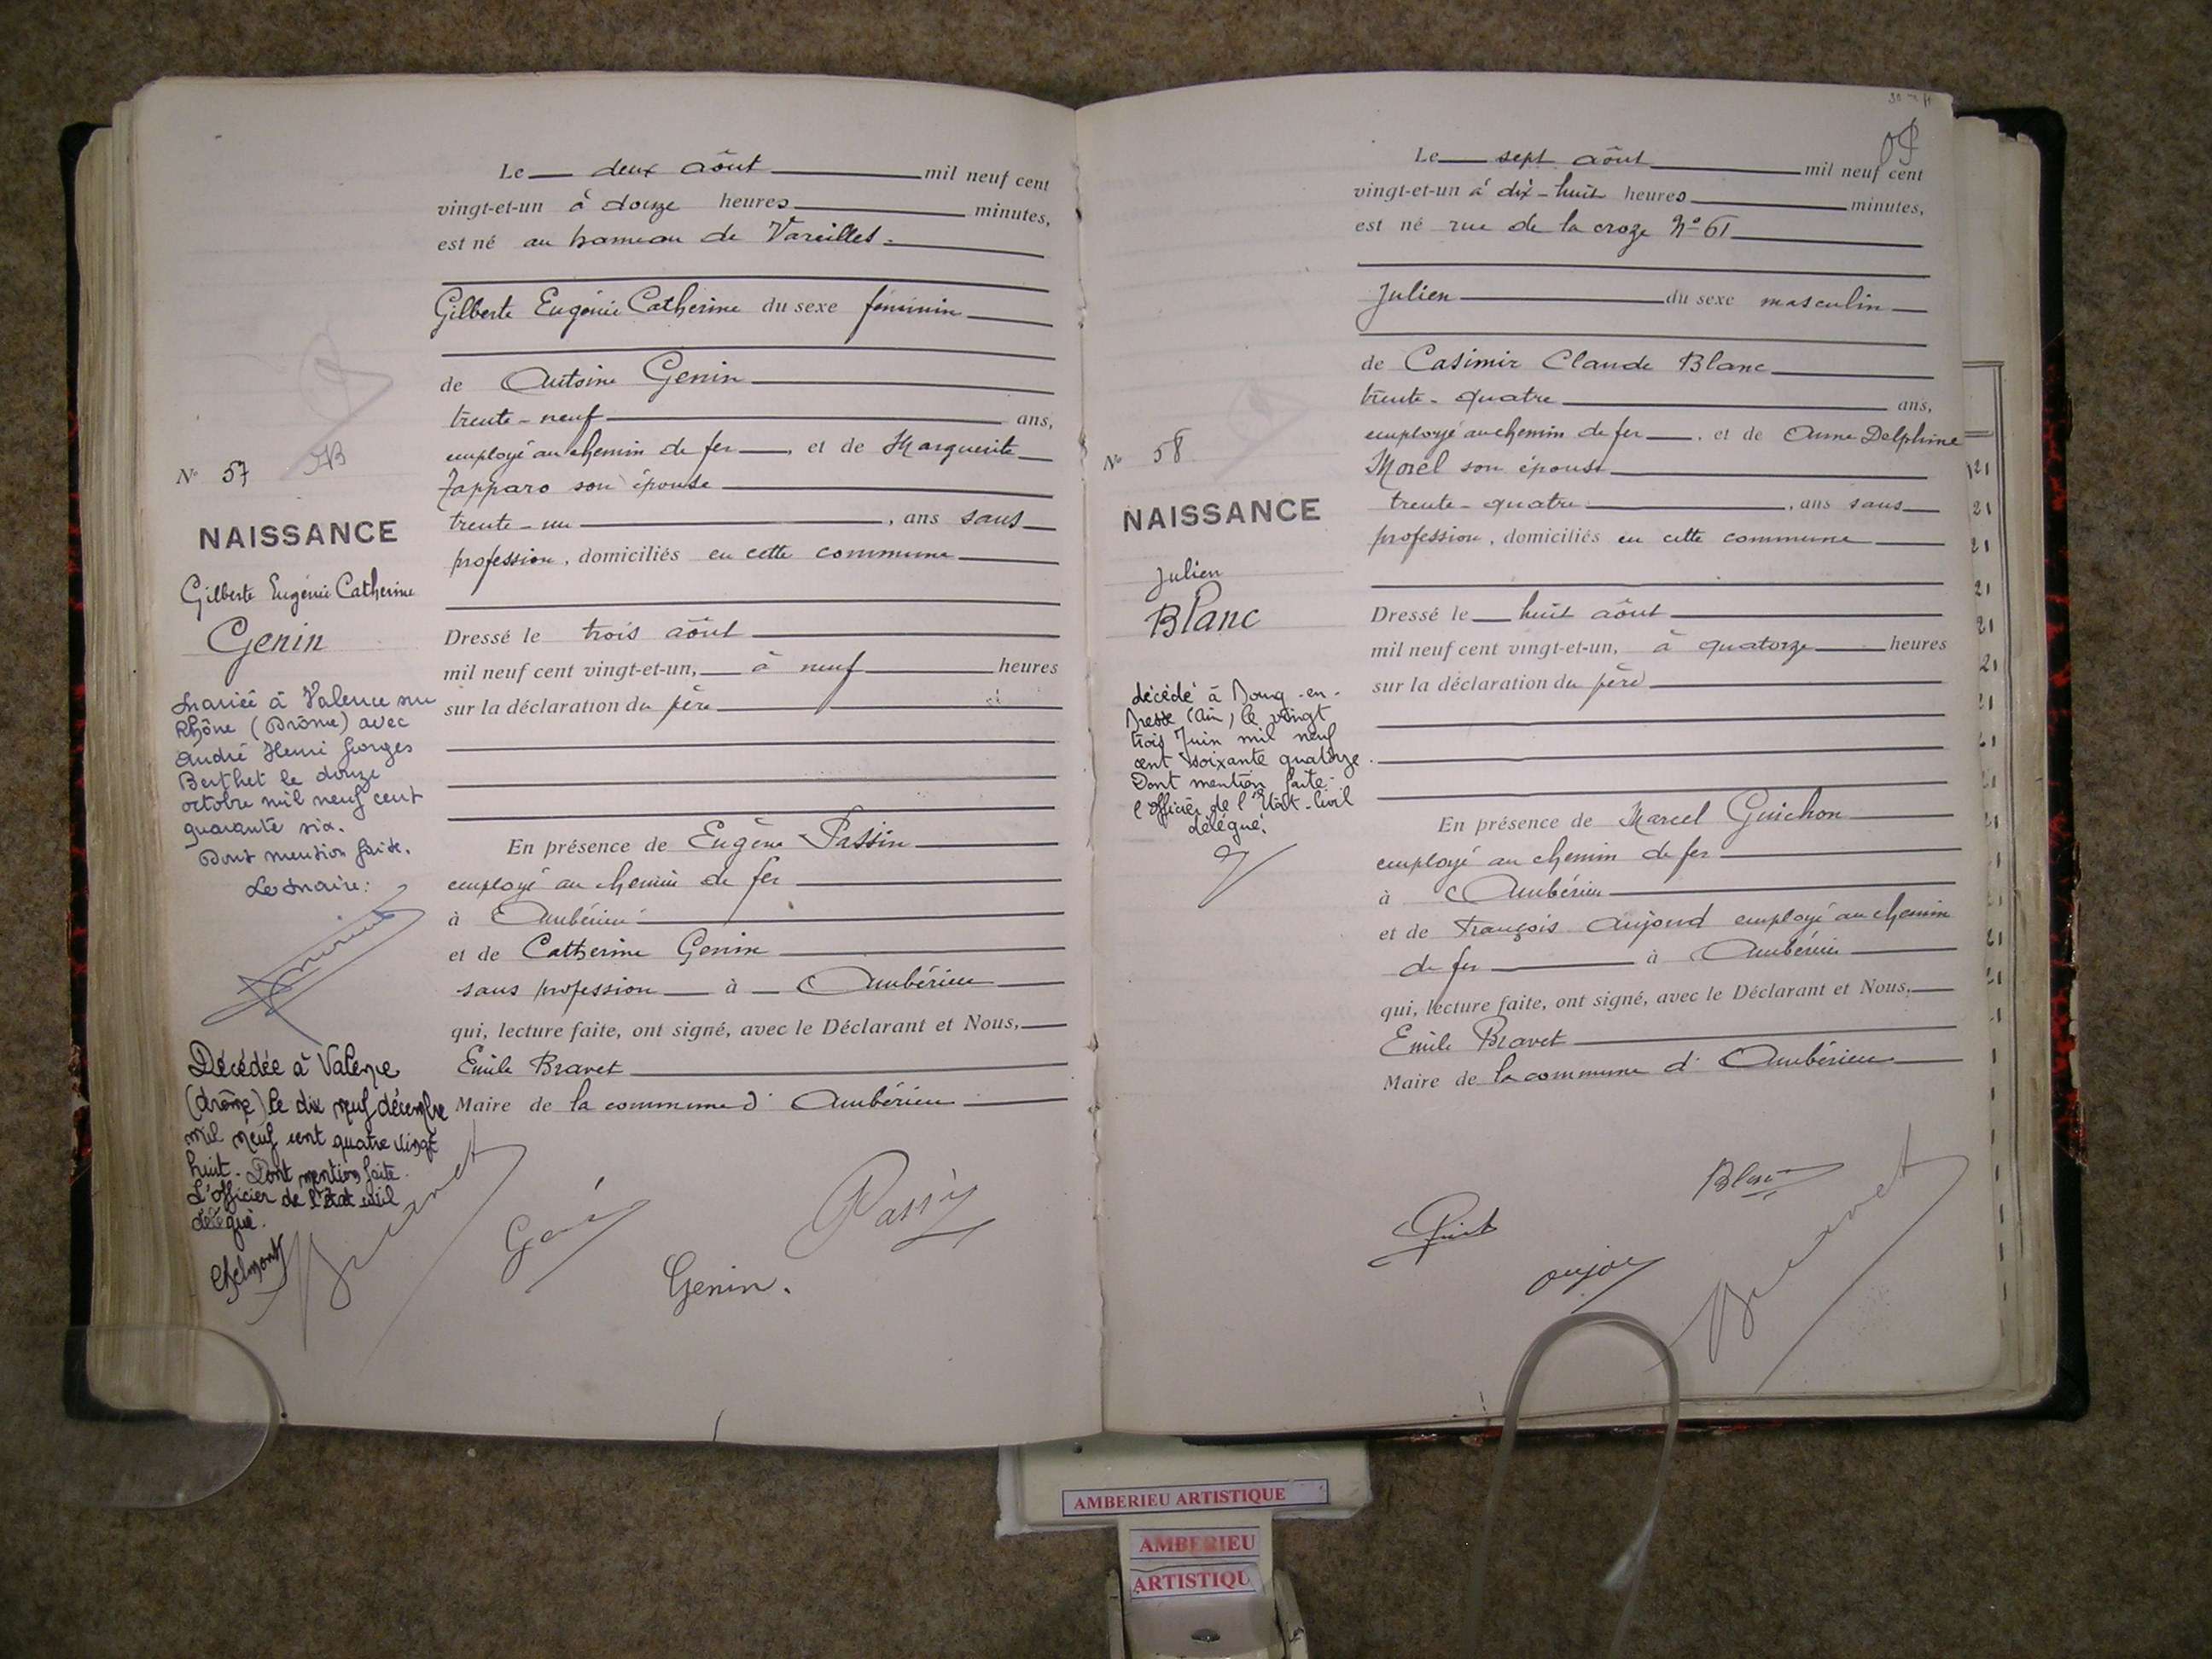 Le deux aôut mil neuf cent
vingt-et-un à douze heures minutes,
est né au hameau de Vareilles.
Gilberte Eugénie Catherine du sexe féminin
de Antoine Genin
trente-neuf ans,
employé au chemin de fer, et de Marguerite
Zapparo son épouse
trente-un, ans sans
profession, domiciliés en cette commune
Dressé le trois aôut
mil neuf cent vingt-et-un, à neuf heures
sur la déclaration du père
En présence de Eugène Passin
employé au chemin de fer
à Ambérieu
et de Catherine Genin
sans profession à Ambérieu
qui, lecture faite, ont signé, avec le Déclarant et Nous,
Emile Bravet
Maire de la commune d' Ambérieu
Genin.
N° 57
NAISSANCE
Gilberte Eugénie Catherine
Genin
Mariée à Valence sur
Rhône (Drôme) avec
André Henri Georges
Berthet le douze
octobre mil neuf cent
quarante six.
Dont mention faite.
Le Maire:
Décédée à Valence
(drôme) le dix neuf décembre
mil neuf cent quatre vingt
huit. Dont mention faite.
L'officier de l'état civil
délégué.
Le sept aôut mil neuf cent
vingt-et-un à dix-huit heures minutes,
est né rue de la croze N° 61
Julien du sexe masculin
de Casimir Claude Blanc
trente-quatre ans,
employé au chemin de fer, et de Anne Delphine
Morel son épouse
trente-quatre, ans sans
profession, domiciliés en cette commune
Dressé le huit aôut
mil neuf cent vingt-et-un, à quatorze heures
sur la déclaration du père
En présence de Marcel Guichon
employé au chemin de fer
à Ambérieu
et de François Aujond employé au chemin
de fer à Ambérieu
qui, lecture faite, ont signé, avec le Déclarant et Nous,
Emile Bravet
Maire de la commune d' Ambérieu
N° 58
NAISSANCE
Julien
Blanc
décédé à Bourg-en-
Bresse (Ain) le vingt
trois Juin mil neuf
cent soixante quatorze.
Dont mention faite.
l'officier de l'Etat-Civil
délégué.
AMBERIEU ARTISTIQUE
AMBERIEU
ARTISTIQU